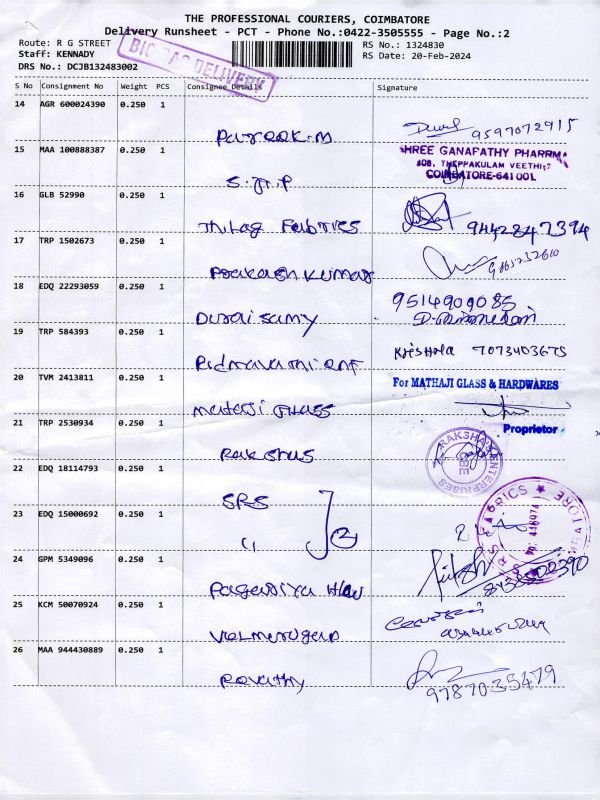 THE PROFESSIONAL COURIERS, COIMBATORE
Delivery Runsheet - PCT - Phone No.:0422-3505555 - Page No.:2
Route: R G STREET
RS No.: 1324830
Staff: KENNADY
RS Date: 20-Feb-2024
DRS No.: DCJB132483002
DELIVERY
S No Consignment No Weight PCS Consignee Details Signature
14 AGR 600024390 0.250 1
9597072915
15 MAA 100888387 0.250 1
SHREE GANAPATHY PHARMA
THEPPAKULAM VEETHI
COIMBATORE-641 001.
16 GLB 52990 0.250 1
Thilag Fabrics 9442847394
17 TRP 1502673 0.250 1
Prakash Kumar
18 EDQ 22293059 0.250 1
9514909085
Duraisamy
19 TRP 584393 0.250 1
7073403675
20 TVM 2413811 0.250 1
For MATHAJI GLASS & HARDWARES
Mataji Glass
21 TRP 2530934 0.250 1
Proprietor
Rakshas
RAKSHA ENTERPRISES
CBE
22 EDQ 18114793 0.250 1
SRS
23 EDQ 15000692 0.250 1
"
24 GPM 5349096 0.250 1
25 KCM 50070924 0.250 1
Velmurugan
26 MAA 944430889 0.250 1
Revathy
9787035479